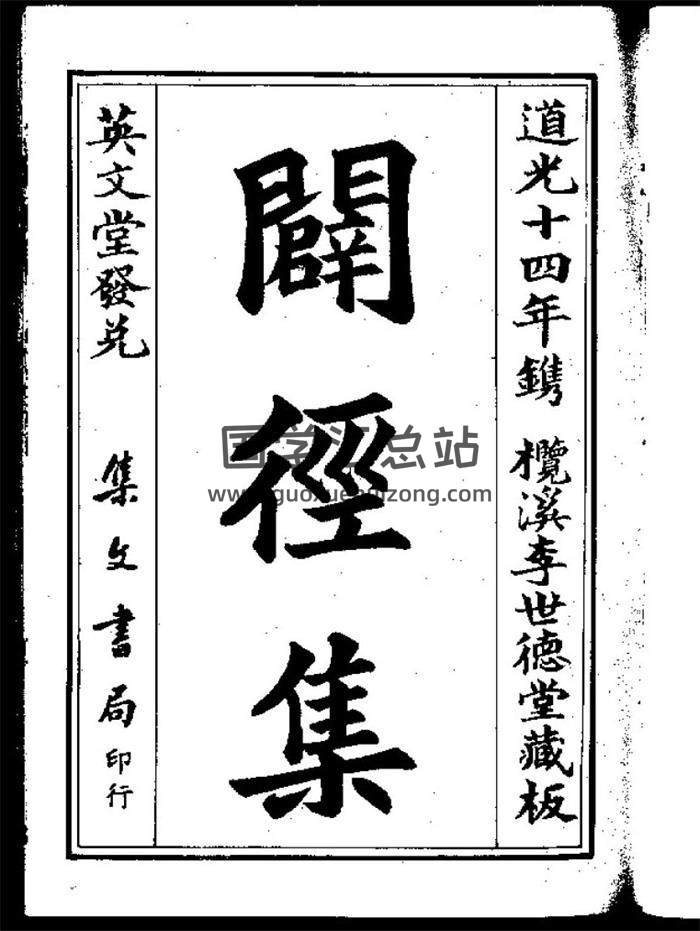 道光十四年鐫 欖溪李世德堂藏板
闢徑集
英文堂發兑 集文書局印行
国学汇总站
www.guoxuehuizong.com